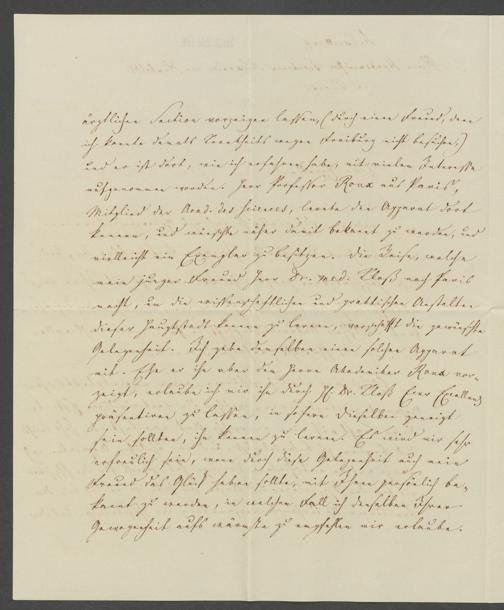 ärztlichen Section vorzeigen lassen, (durch einen Freund, denn
ich konnte damals Krankheits wegen Freiburg nicht besuchen,)
und er ist dort, wie ich erfahren habe, mit vielem Interesse
aufgenommen worden. Herr Professor Roux aus Paris,
Mitglied der Acad. des sciences, lernte den Apparat dort
kennen, und wünschte näher damit bekannt zu werden, und
vielleicht ein Exemplar zu besitzen. Die Reise, welche
mein junger Freund Herr Dr. med. Kloß nach Paris
macht, um die wissenschaftlichen und praktischen Anstalten
dieser Hauptstadt kennen zu lernen, verschafft die gewünschte
Gelegenheit. Ich gebe demselben einen solchen Apparat
mit. Ehe er ihn aber dem Herrn Akademiker Roux vor-
zeigt, erlaube ich mir ihn durch H. Dr. Kloß Euer Excellenz
präsentiren zu lassen, in sofern dieselben geneigt
sein sollten, ihn kennen zu lernen. Es wird mir sehr
erfreulich sein, wenn durch diese Gelegenheit auch mein
Freund das Glück haben sollte, mit Ihnen persönlich be-
kannt zu werden, in welchem Fall ich denselben Ihrer
Gewogenheit aufs wärmste zu empfehlen mir erlaube.